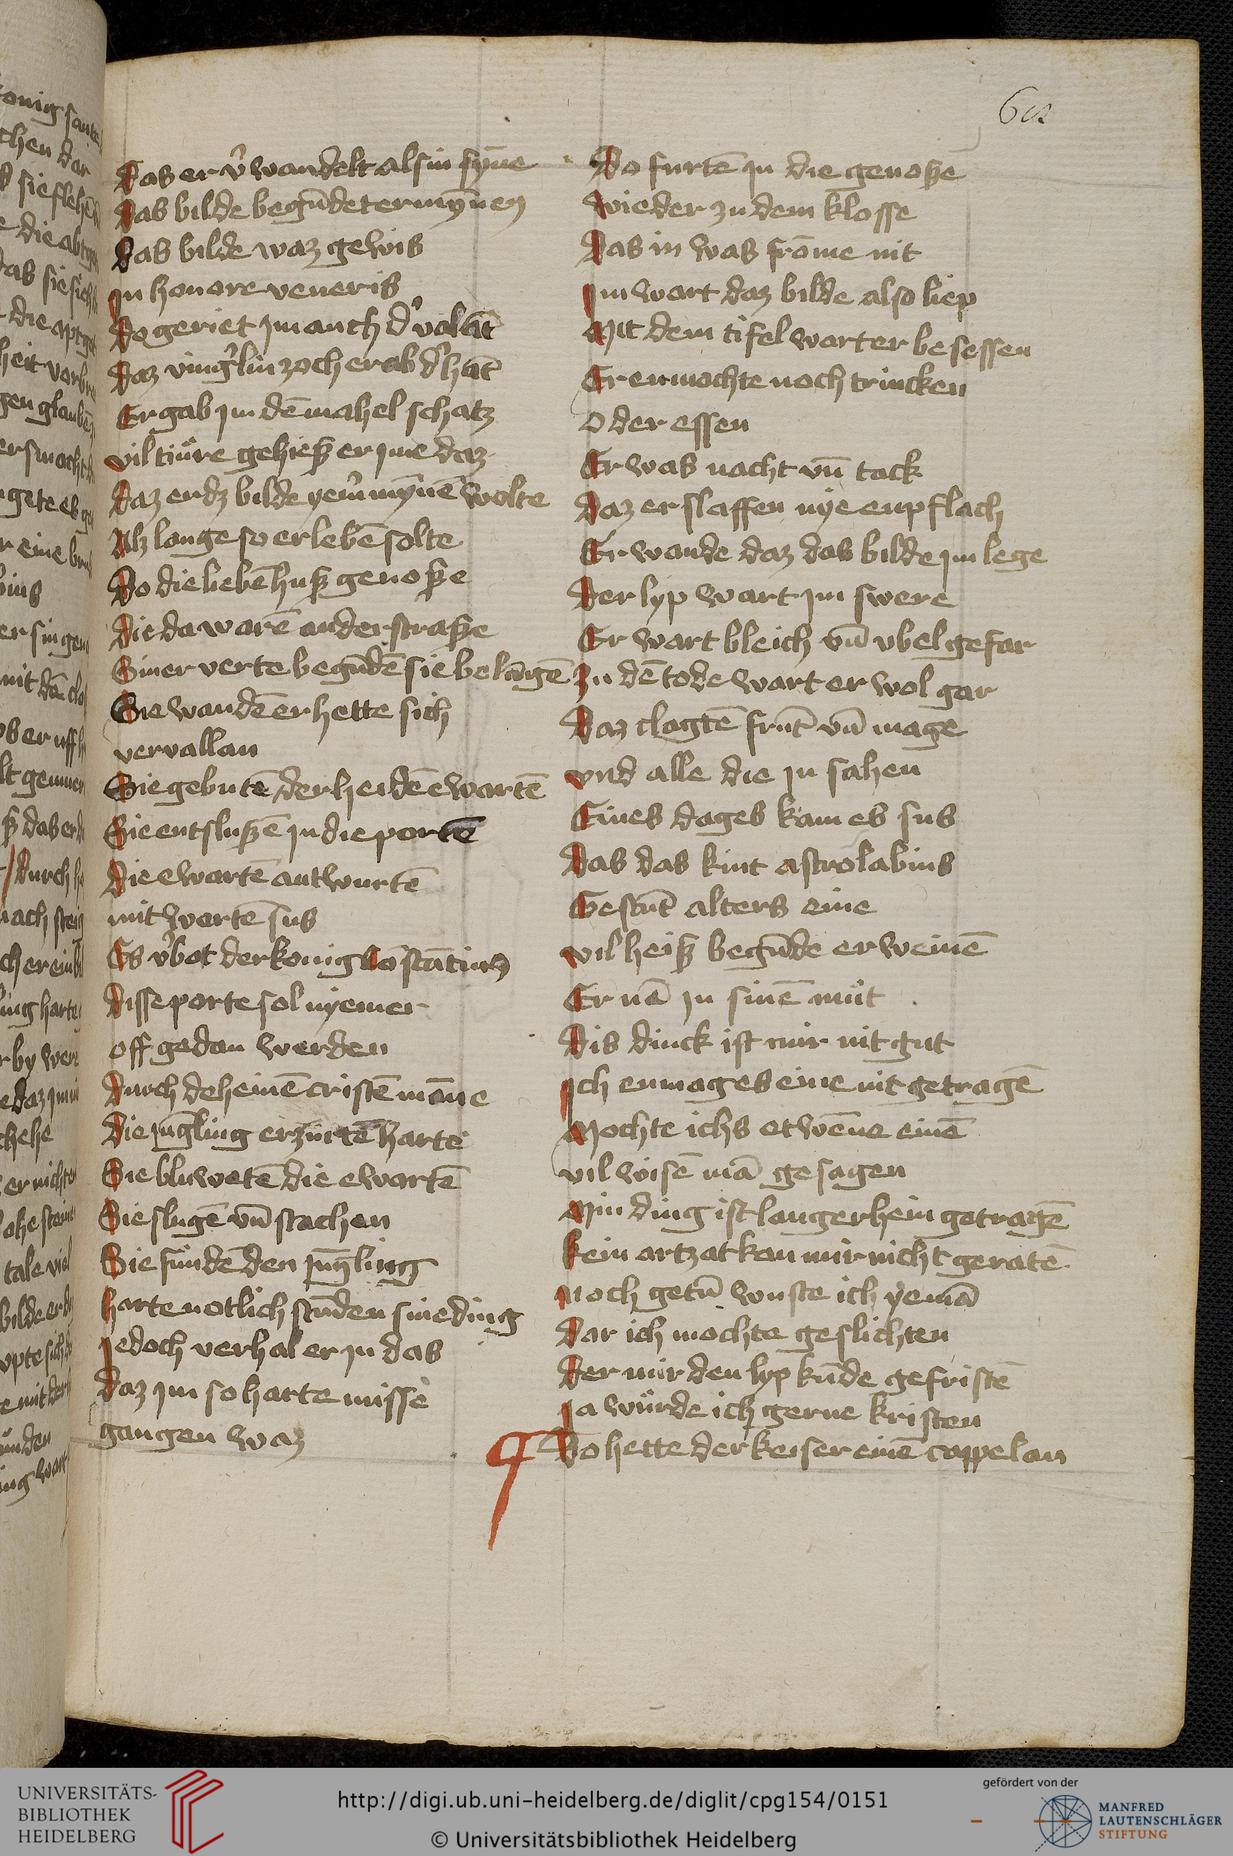 Das er v̾wandelt als in syn̄e
Das bilde begūdet er mȳnen
Das bilde waz gewis
Jn honore veneris
Do geriet jm auch d̾ volāt
Daz ving̾lin zoch er ab d̾ hāt
Er gab jm dē mahel schatz
vil tiüre gehieß er jme daz
Daz er dz bilde yem̾ mȳnē wolte
Alz lange so er lebē solte
Do die liebē hußgenoße
Die da warē an der straße
Siner verte begūdē sie belāgē
Sie wandē er hette sich
vervallan
Sie gebutē der heidē ewartē
Sie entslußē in die portē
Die ewartē antwurtē
mit wortē sus
Es v̾bot der konig Cōstātinus
Disse porte sol nyemer
off gedan werden
Durch deheinē cristē māne
Die jūgling erzurtē harte
Sie bluwetē die ewartē
Sie slugē vn̄ stachen
Sie fundē den jūgling
harte notlich stūden sine ding
jedoch verhal er jn das
Daz jm so harte misse
gangen waz
60
Do furtē jn die genoße
wieder zu dem klosse
Das in was frōme nit
jm wart daz bilde also liep
Mit dem tifel wart er besessen
Er enmochte noch trincken
oder essen
Er was nacht vn̄ tack
Daz er slaffen nye enpflach
Er wande daz das bilde jm lege
Der lyp wart jm swere
Er wart bleich vn̄ vbel gefar
Zu dē tode wart er wol gar
Daz clagtē frūt vn̄ mage
vnd alle die jn sahen
Eines dages kam es sus
Das das kint astrolabius
Gestūt alters eine
vil heiß begūde er weinē
Er nā jn sinē müt
Dis dinck ist mir nit gut
Jch enmag es eine nit getragē
Mochte ichs etwēne einē
vil wisē mā gesagen
Min ding ist langer hein getragē
kein artzat kan mir nicht geratē
Noch getū wuste ich yemā
Dar ich mochte geslichten
Der mir den lyp kūde gefristē
Ja würde ich gerne kristen
Do hette der keiser einē cappelan
UNIVERSITÄTS-
BIBLIOTHEK
HEIDELBERG
http://digi.ub.uni-heidelberg.de/diglit/cpg154/0151
© Universitätsbibliothek Heidelberg
gefördert von der
MANFRED
LAUTENSCHLÄGER
STIFTUNG